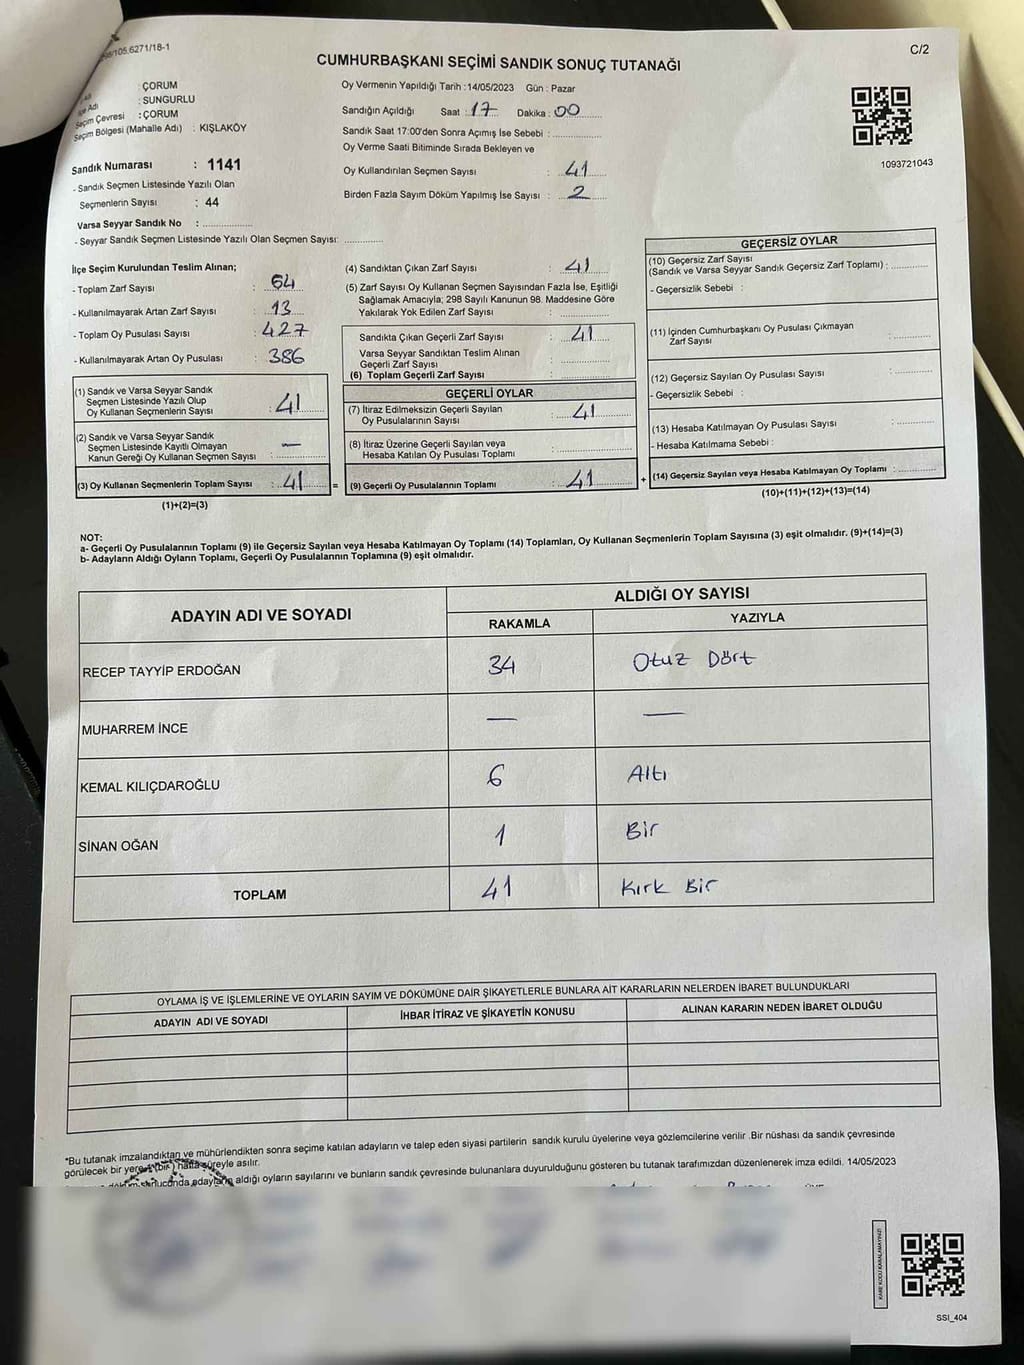 105.6271/18-1
C/2
CUMHURBAŞKANI SEÇİMİ SANDIK SONUÇ TUTANAĞI
: ÇORUM
İlçe Adı : SUNGURLU
Seçim Çevresi : ÇORUM
Seçim Bölgesi (Mahalle Adı) : KIŞLAKÖY
Sandık Numarası : 1141
- Sandık Seçmen Listesinde Yazılı Olan
Seçmenlerin Sayısı : 44
Varsa Seyyar Sandık No : ..............
- Seyyar Sandık Seçmen Listesinde Yazılı Olan Seçmen Sayısı: ............
Oy Vermenin Yapıldığı Tarih : 14/05/2023 Gün : Pazar
Sandığın Açıldığı Saat : 17 Dakika : 00
Sandık Saat 17:00'den Sonra Açımış İse Sebebi : ..............
Oy Verme Saati Bitiminde Sırada Bekleyen ve
Oy Kullandırılan Seçmen Sayısı : 41
Birden Fazla Sayım Döküm Yapılmış İse Sayısı : 2
1093721043
İlçe Seçim Kurulundan Teslim Alınan;
- Toplam Zarf Sayısı : 64
- Kullanılmayarak Artan Zarf Sayısı : 13
- Toplam Oy Pusulası Sayısı : 427
- Kullanılmayarak Artan Oy Pusulası : 386
(1) Sandık ve Varsa Seyyar Sandık
Seçmen Listesinde Yazılı Olup
Oy Kullanan Seçmenlerin Sayısı : 41
(2) Sandık ve Varsa Seyyar Sandık
Seçmen Listesinde Kayıtlı Olmayan
Kanun Gereği Oy Kullanan Seçmen Sayısı : —
(3) Oy Kullanan Seçmenlerin Toplam Sayısı : 41 =
(1)+(2)=(3)
(4) Sandıktan Çıkan Zarf Sayısı : 41
(5) Zarf Sayısı Oy Kullanan Seçmen Sayısından Fazla İse, Eşitliği
Sağlamak Amacıyla; 298 Sayılı Kanunun 98. Maddesine Göre
Yakılarak Yok Edilen Zarf Sayısı : ..............
Sandıkta Çıkan Geçerli Zarf Sayısı : 41
Varsa Seyyar Sandıktan Teslim Alınan
Geçerli Zarf Sayısı : ..............
(6) Toplam Geçerli Zarf Sayısı : ..............
GEÇERLİ OYLAR
(7) İtiraz Edilmeksizin Geçerli Sayılan
Oy Pusulalarının Sayısı : 41
(8) İtiraz Üzerine Geçerli Sayılan veya
Hesaba Katılan Oy Pusulası Toplamı : ..............
(9) Geçerli Oy Pusulalarının Toplamı : 41 +
GEÇERSİZ OYLAR
(10) Geçersiz Zarf Sayısı
(Sandık ve Varsa Seyyar Sandık Geçersiz Zarf Toplamı) : ............
- Geçersizlik Sebebi :
(11) İçinden Cumhurbaşkanı Oy Pusulası Çıkmayan
Zarf Sayısı : ............
(12) Geçersiz Sayılan Oy Pusulası Sayısı : ............
- Geçersizlik Sebebi :
(13) Hesaba Katılmayan Oy Pusulası Sayısı : ............
- Hesaba Katılmama Sebebi :
(14) Geçersiz Sayılan veya Hesaba Katılmayan Oy Toplamı : ............
(10)+(11)+(12)+(13)=(14)
NOT:
a- Geçerli Oy Pusulalarının Toplamı (9) ile Geçersiz Sayılan veya Hesaba Katılmayan Oy Toplamı (14) Toplamları, Oy Kullanan Seçmenlerin Toplam Sayısına (3) eşit olmalıdır. (9)+(14)=(3)
b- Adayların Aldığı Oyların Toplamı, Geçerli Oy Pusulalarının Toplamına (9) eşit olmalıdır.
ADAYIN ADI VE SOYADI ALDIĞI OY SAYISI
RAKAMLA YAZIYLA
RECEP TAYYİP ERDOĞAN 34 Otuz Dört
MUHARREM İNCE — —
KEMAL KILIÇDAROĞLU 6 Altı
SİNAN OĞAN 1 Bir
TOPLAM 41 Kırk Bir
OYLAMA İŞ VE İŞLEMLERİNE VE OYLARIN SAYIM VE DÖKÜMÜNE DAİR ŞİKAYETLERLE BUNLARA AİT KARARLARIN NELERDEN İBARET BULUNDUKLARI
ADAYIN ADI VE SOYADI İHBAR İTİRAZ VE ŞİKAYETİN KONUSU ALINAN KARARIN NEDEN İBARET OLDUĞU
*Bu tutanak imzalandıktan ve mühürlendikten sonra seçime katılan adayların ve talep eden siyasi partilerin sandık kurulu üyelerine veya gözlemcilerine verilir .Bir nüshası da sandık çevresinde
görülecek bir yere 1 (bir) hafta süreyle asılır.
sonucunda adayların aldığı oyların sayılarını ve bunların sandık çevresinde bulunanlara duyurulduğunu gösteren bu tutanak tarafımızdan düzenlenerek imza edildi. 14/05/2023
KARE KODU KARALAMAYINIZ!
SSI_404